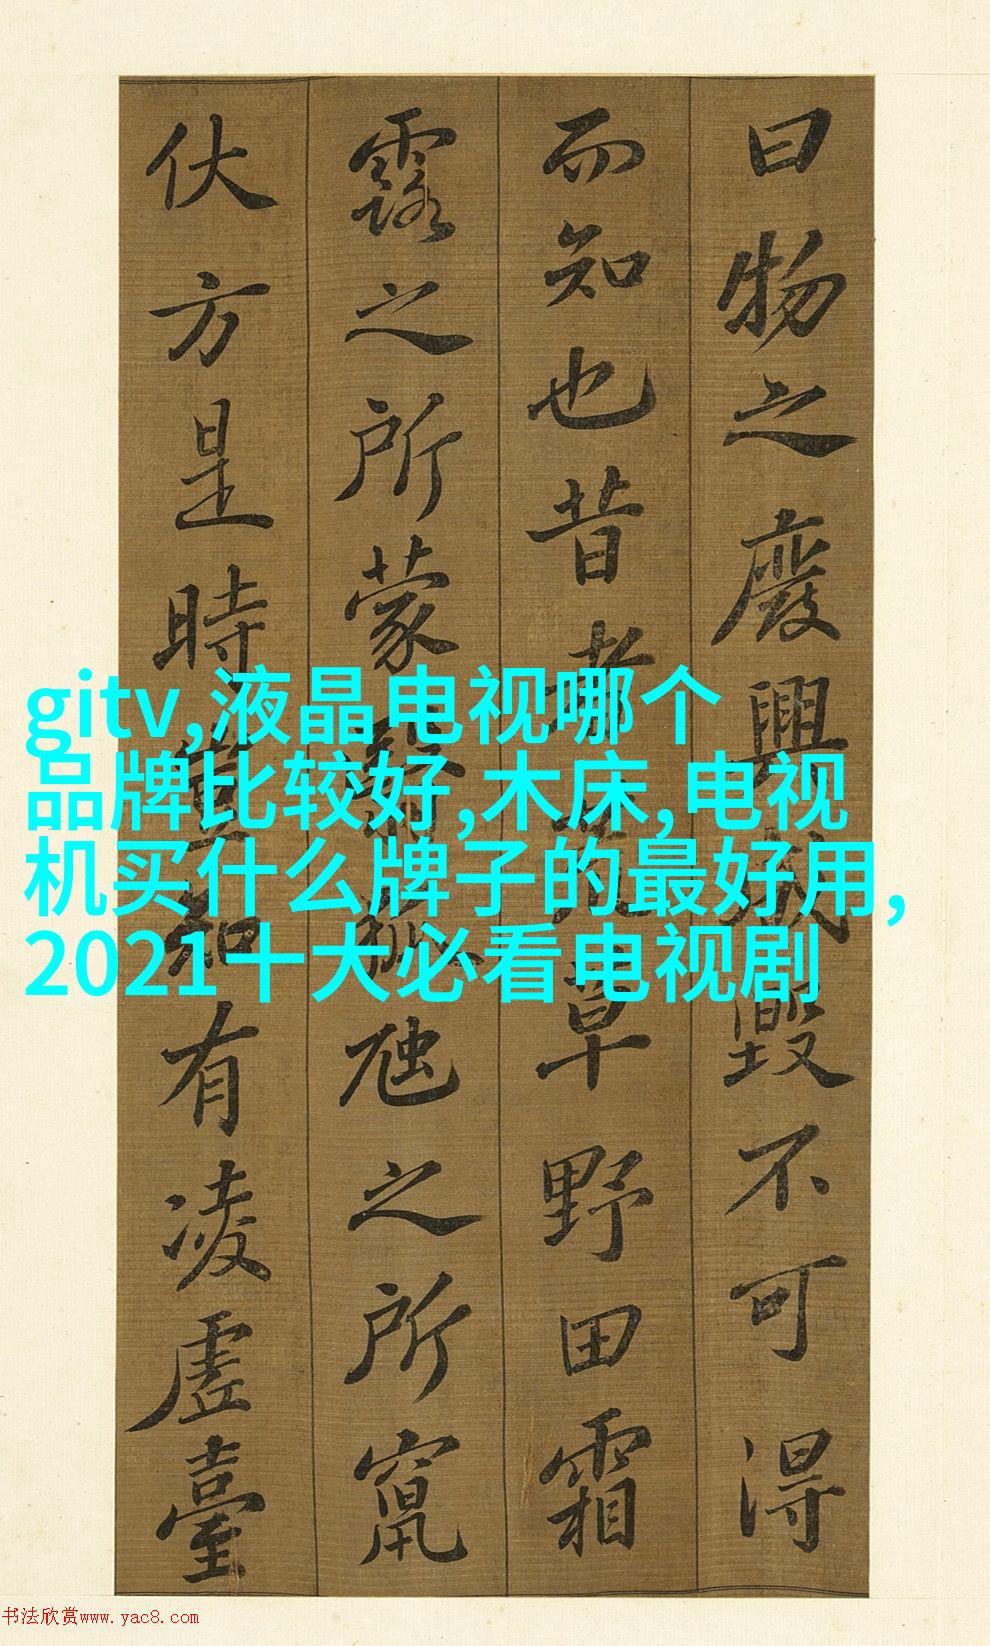 曰物之廢興成毀不可得
而知也昔者荒草野田霜
露之所蒙翳狐虺之所竄
伏方是時豈知有凌虛臺
gitv,液晶电视哪个
品牌比较好,木床,电视
机买什么牌子的最好用,
2021十大必看电视剧
书法欣赏www.yac8.com